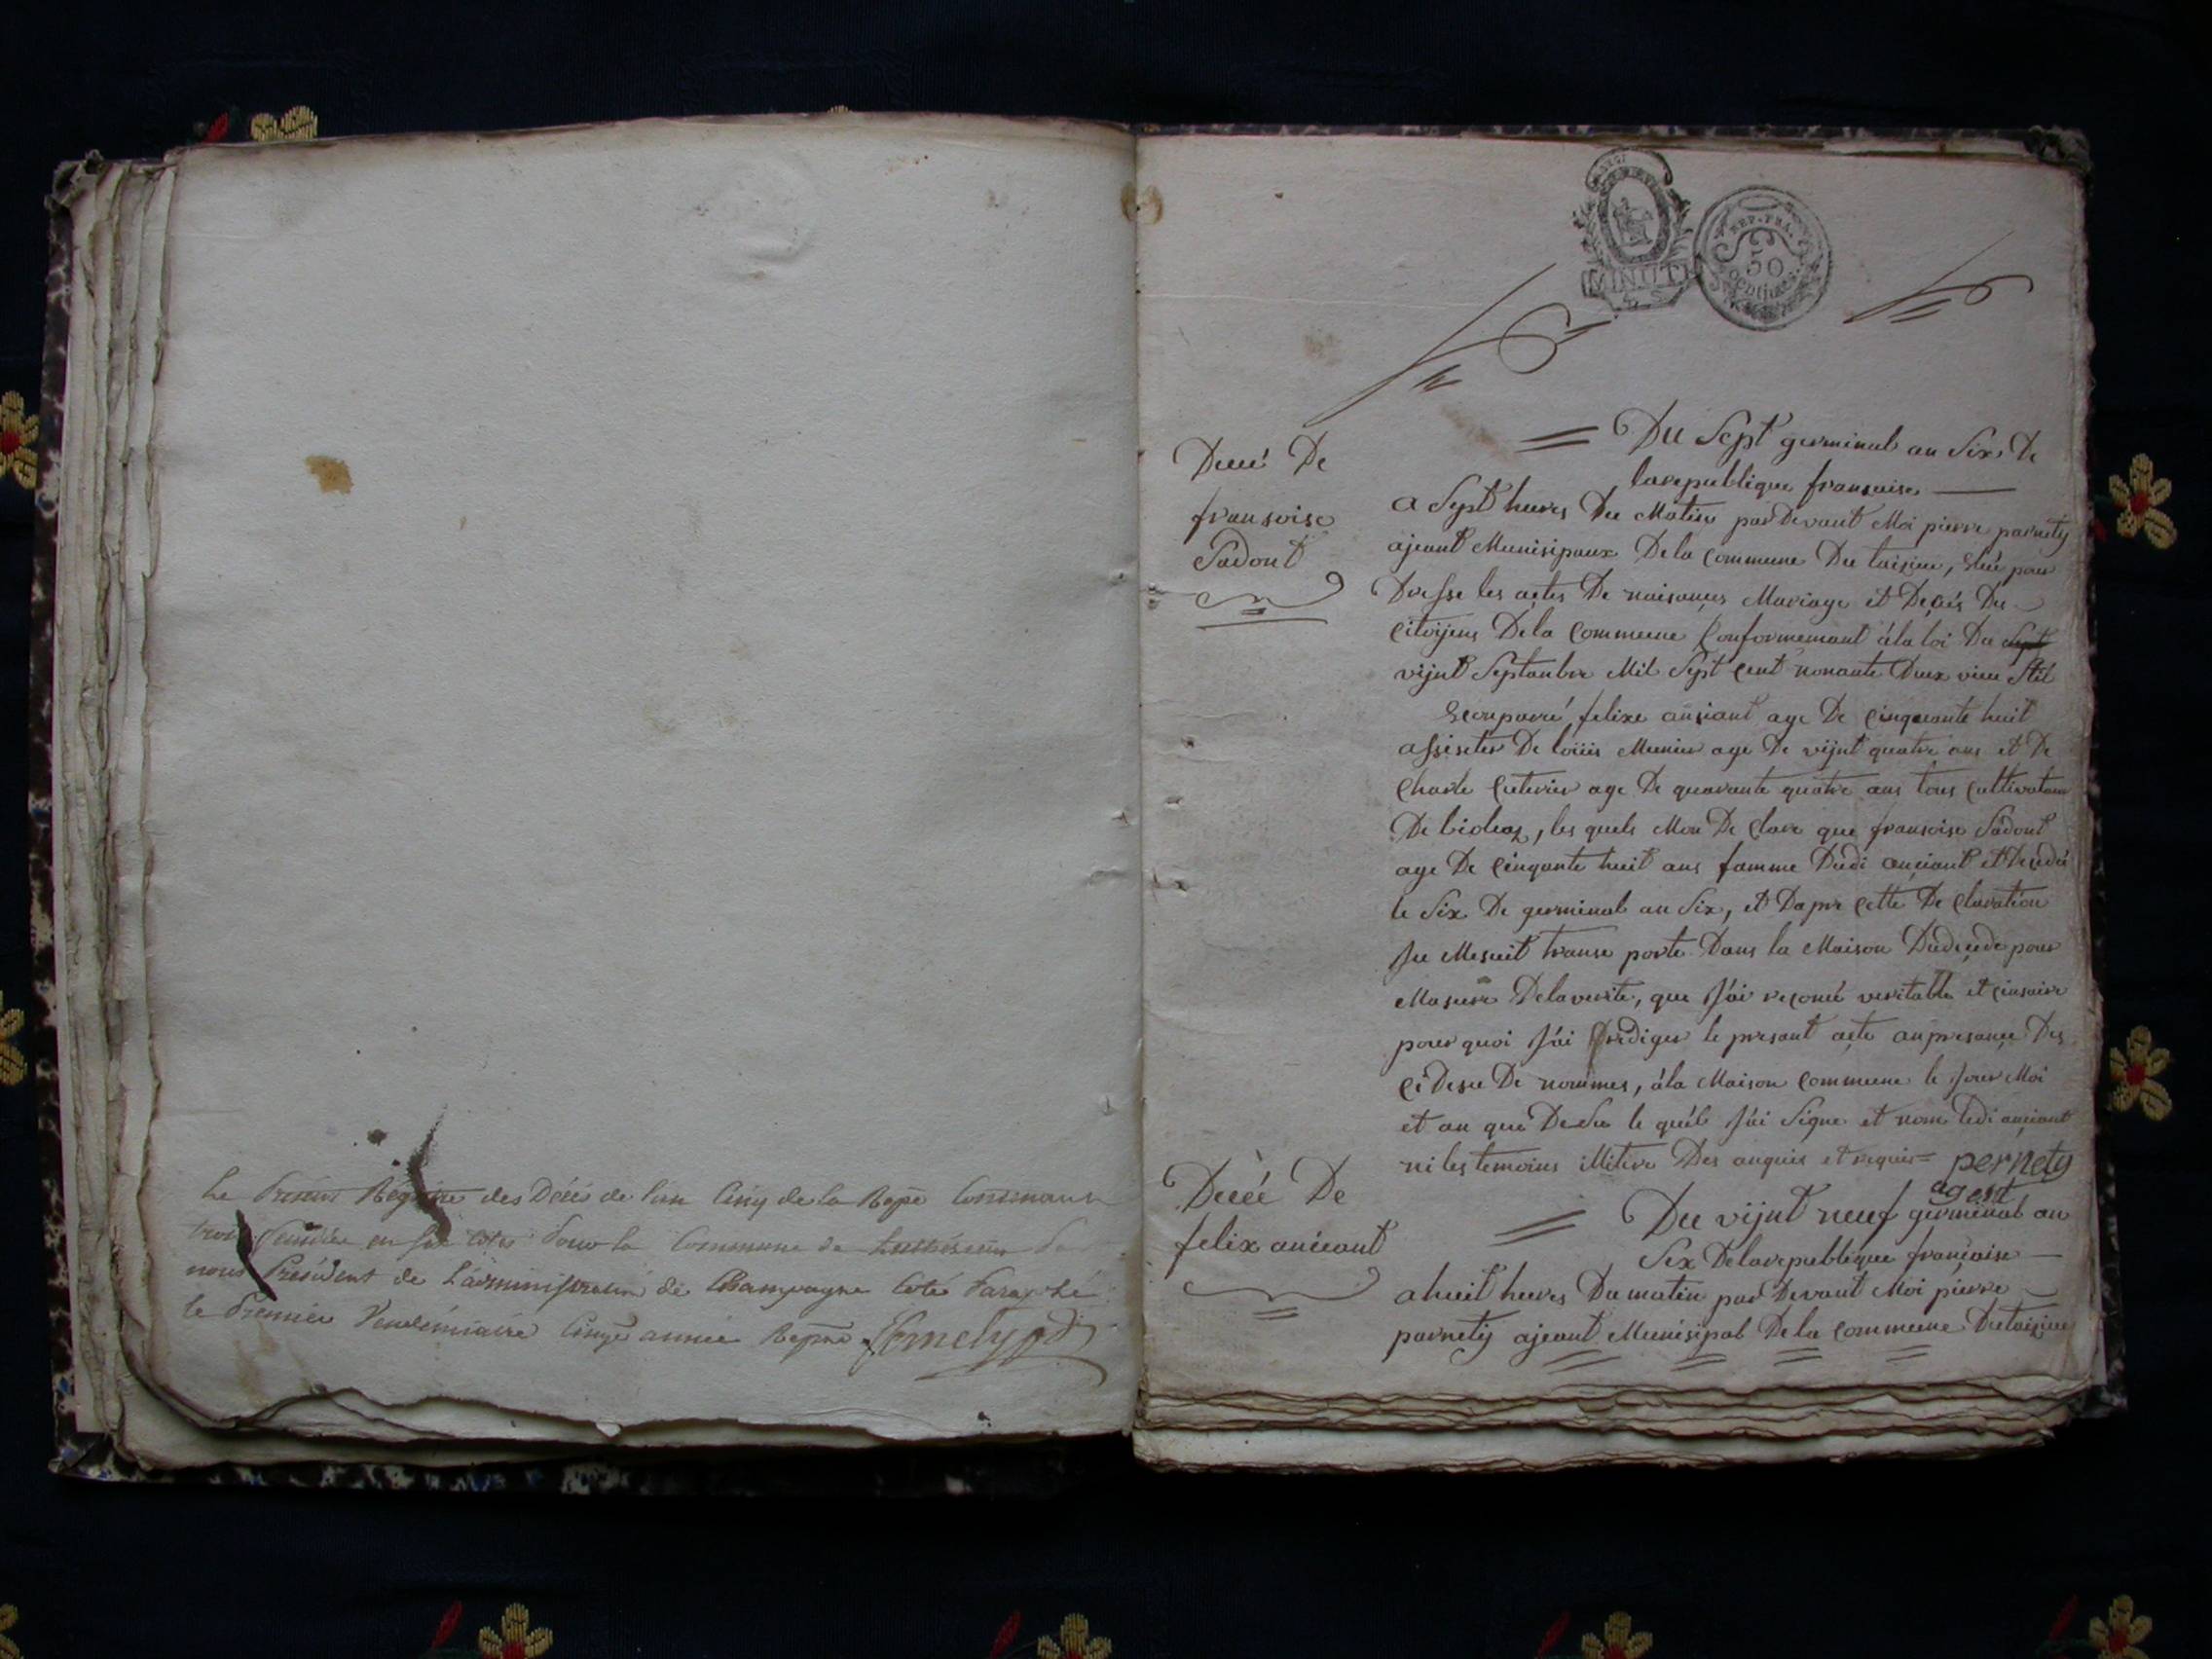 Le Present Régistre des Décès de l'an Cinq de la Repe Contenant
trois feuilles en            Pour la Commune de
nous Président de L'administration de Champagne Coté Paraphé
le Premier Vendémiaire Cinqe année Repne
MINUTE
REP. FRA.
50
centimes
Deceé De
fransoise
Sadont
Du Sept germinal an Six De
larepublique fransaise
a Sept heures Du Matin pardevant Moi pierre parnety
ajeant Munisipaux De la commune Du           , Eleu pour
Dresse les actes De naisances Mariage et Decais Des
citoijens De la Commune Conformemant à la loi Du Sept
vijnt Septanbre Mil Sept Cent nonante Deux vieu Stil
Ecomparé, felixe ansiant age De Cinquante huit
assister De loüis Munier age De vijnt quatre ans et De
Charle            age De quarante quatre ans tous Cultivateur
De           , les quels Mon De Clare que fransoise Sadont
age De Cinqante huit ans famme Dudi anciant et Decedé
le Six De germinal an Six, et Dapre Cette De Claration
Je Mesuit transe porte Dans la Maison Dudecede pour
Masure Delaverite, que J'ai reconeu veritable et sinsaire
pour quoi J'ai rediger le presant acte anpresance Des
ci Desu De nommes, à la Maison Commune le Jour Moi
et an que De Su le quél J'ai Signe et nom ledi anciant
ni les temoins            Des anquis et requis = pernety
agent
Deceé De
felix anciant
Du vijnt neuf germinal an
Six Delarepublique française
a huit heures Du matin par Devant Moi pierre
parnetij ajeant Munisipal De la Commune